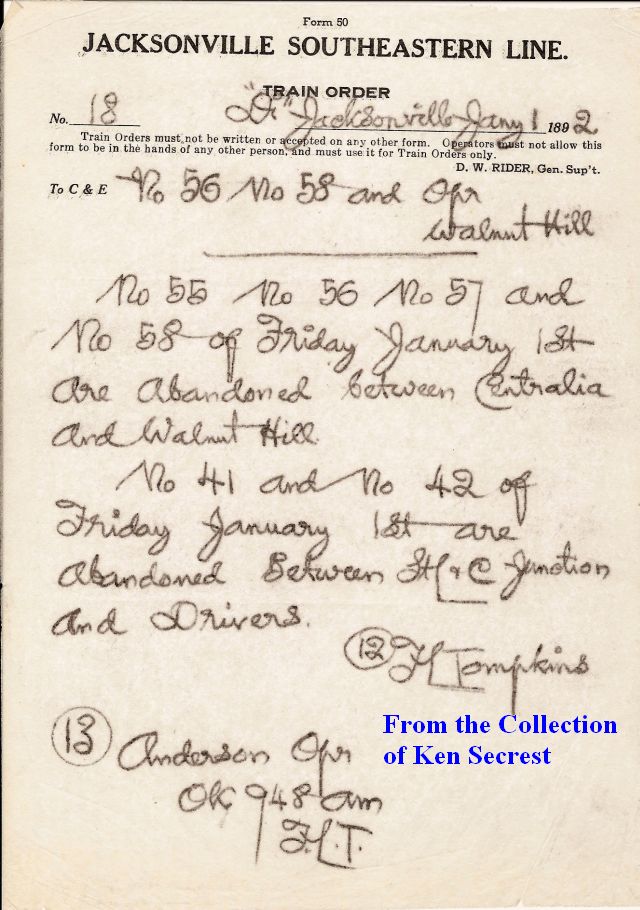 Form 50
JACKSONVILLE SOUTHEASTERN LINE.
TRAIN ORDER
No. 18 "Di" Jacksonville Jany 1 1892
Train Orders must not be written or accepted on any other form. Operators must not allow this
form to be in the hands of any other person, and must use it for Train Orders only.
D. W. RIDER, Gen. Sup't.
To C & E No 56 No 58 and Opr
Walnut Hill
No 55 No 56 No 57 and
No 58 of Friday January 1st
are abandoned between Centralia
and Walnut Hill.
No 41 and No 42 of
Friday January 1st are
abandoned between StL & C Junction
and Drivers.
12 H Tompkins
13
Anderson Opr
OK 948 am
From the Collection
of Ken Secrest